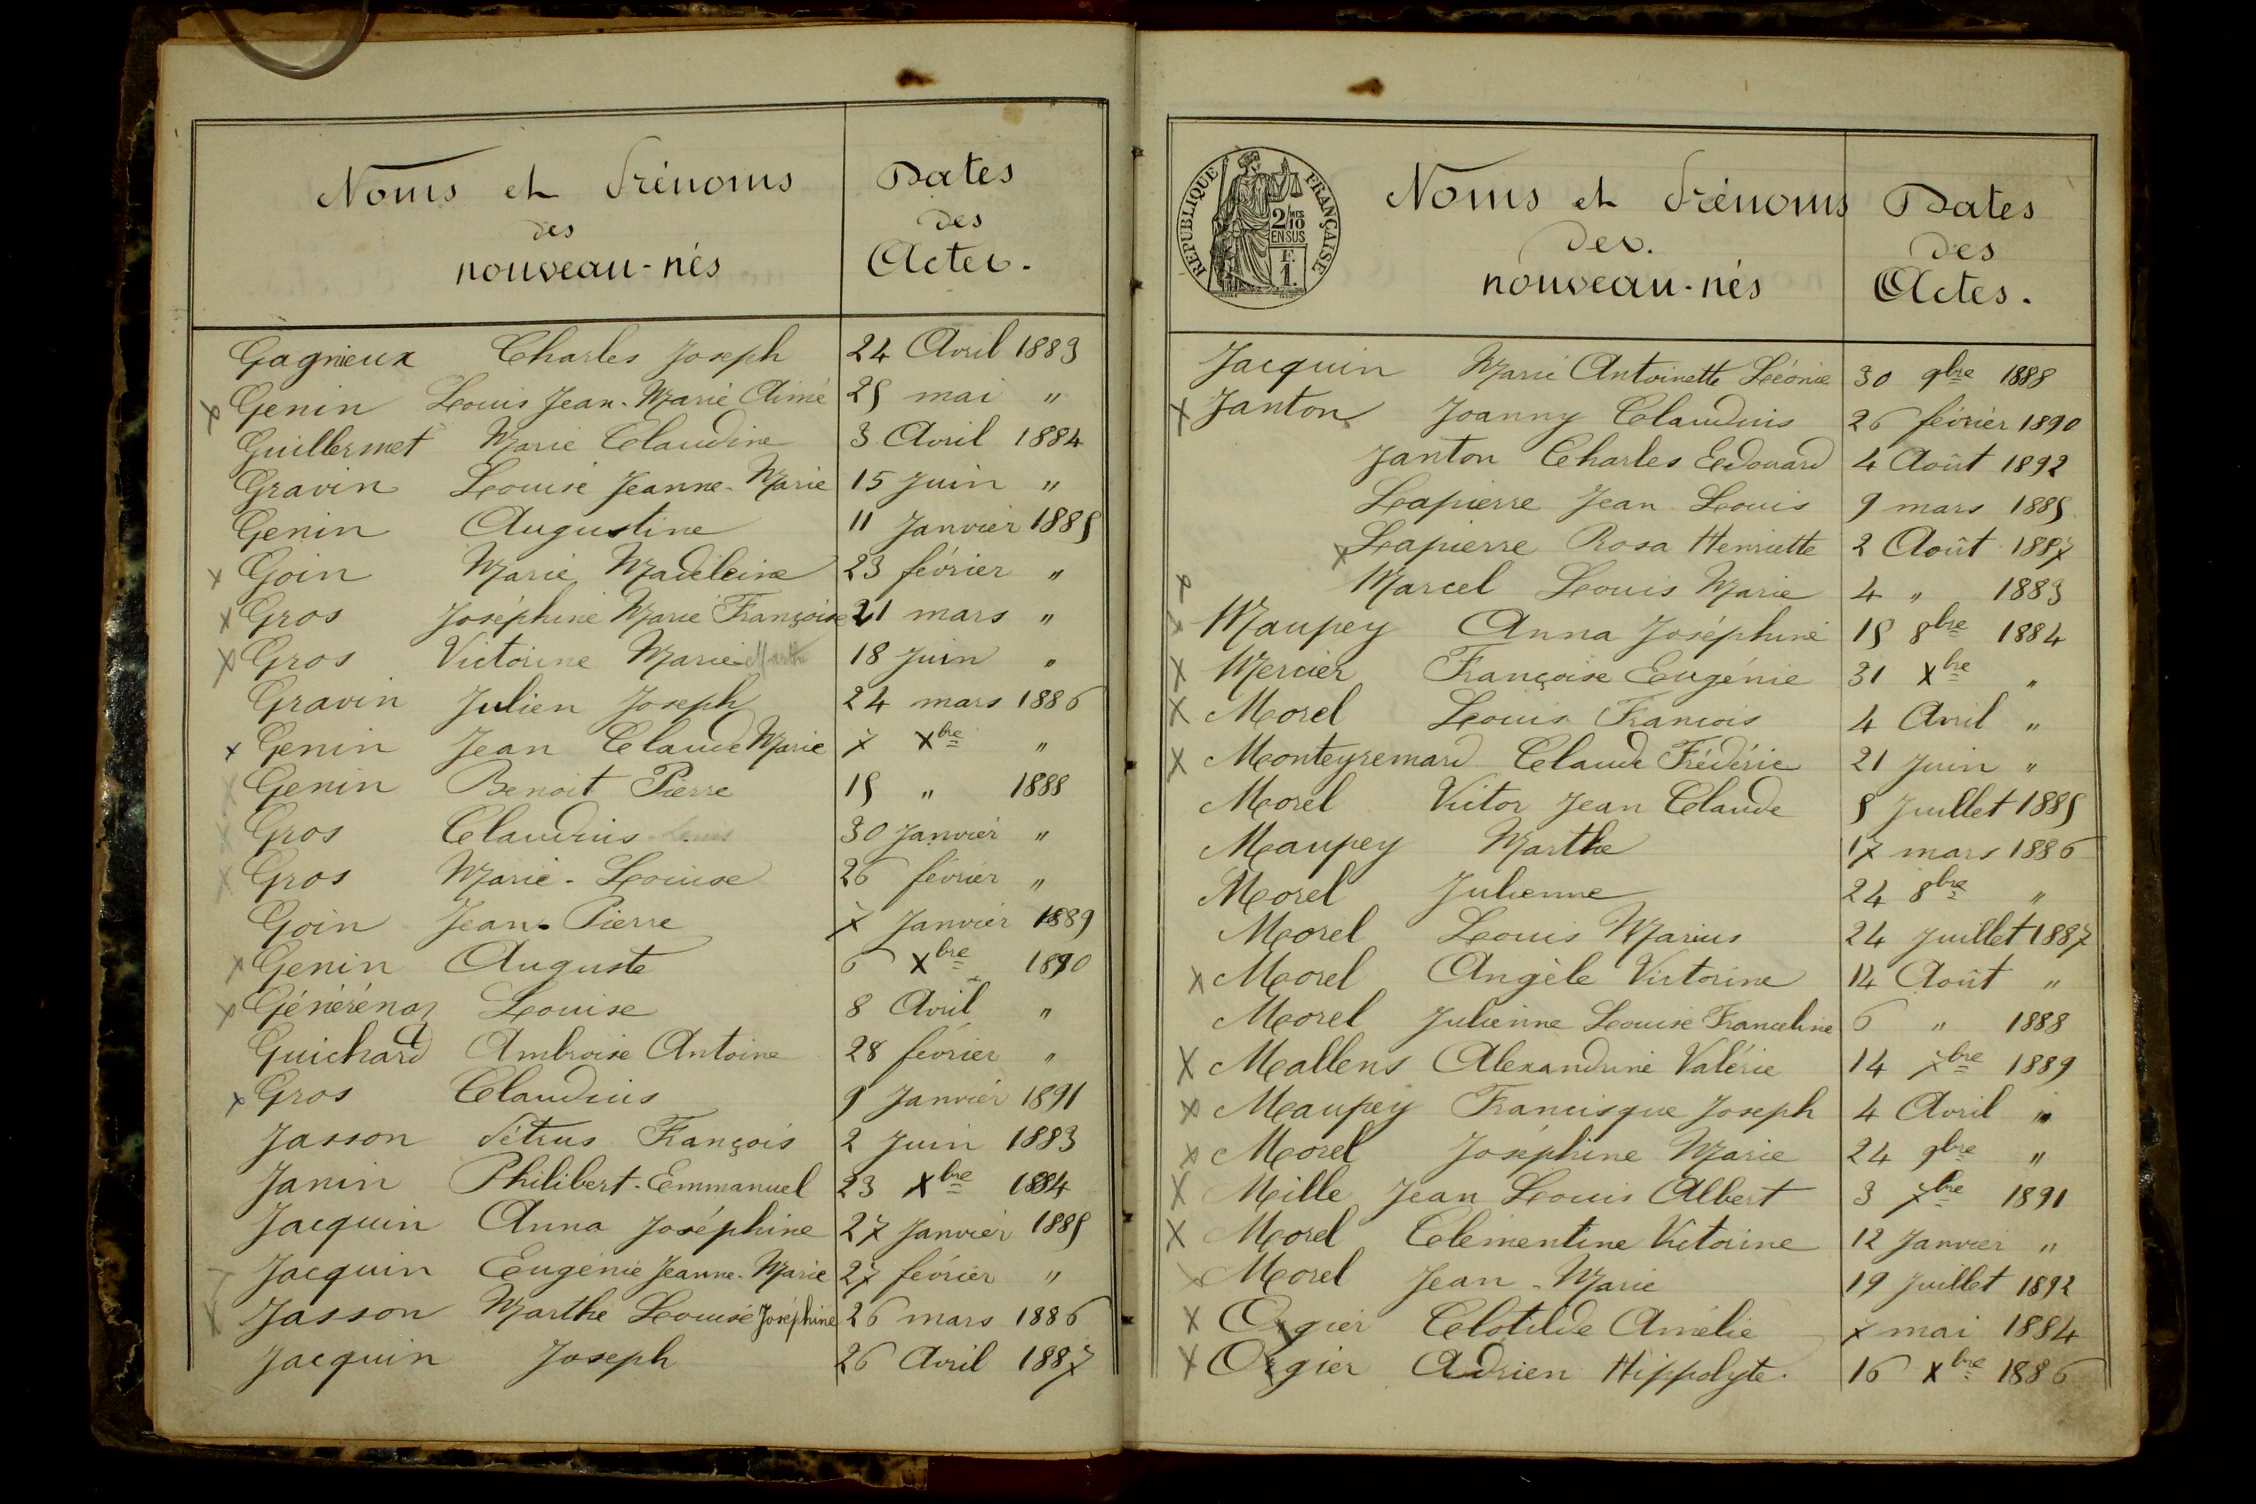 Noms et Prénoms
des
nouveau-nés
Dates
des
Actes.
Gagnieux Charles Joseph 24 Avril 1883
x Genin Louis Jean-Marie Aimé 25 mai "
Guillermet Marie Claudine 3 Avril 1884
Gravin Louise Jeanne-Marie 15 Juin "
Genin Augustine 11 Janvier 1885
x Goin Marie Madeleine 23 février "
x Gros Joséphine Marie Françoise 21 mars "
x Gros Victorine Marie Marthe 18 Juin "
Gravin Julien Joseph 24 mars 1886
x Genin Jean Claude Marie 7 Xbre "
x Genin Benoit Pierre 15 " 1888
x Gros Claudius Louis 30 Janvier "
x Gros Marie-Louise 26 février "
Goin Jean-Pierre 7 Janvier 1889
x Genin Auguste 6 Xbre 1890
x Générénaz Louise 8 Avril "
Guichard Ambroise Antoine 28 février "
x Gros Claudius 9 Janvier 1891
Jasson Pétrus François 2 Juin 1883
Janin Philibert-Emmanuel 23 Xbre 1884
Jacquin Anna Joséphine 27 Janvier 1885
Jacquin Eugénie Jeanne-Marie 27 février "
x Jasson Marthe Louise Joséphine 26 mars 1886
Jacquin Joseph 26 Avril 1887
RÉPUBLIQUE FRANÇAISE
2/10
EN SUS
F.
1.
Noms et Prénoms
des.
nouveau-nés
Dates
des
Actes.
Jacquin Marie Antoinette Léonie 30 9bre 1888
x Janton Joanny Claudius 26 février 1890
Janton Charles Edouard 4 Août 1892
Lapierre Jean Louis 9 mars 1885
x Lapierre Rosa Henriette 2 Août 1887
x Marcel Louis Marie 4 " 1883
x Maupey Anna Joséphine 15 8bre 1884
x Mercier Françoise Eugénie 31 Xbre "
x Morel Louis Francois 4 Avril "
x Monteyremard Claude Frédéric 21 Juin "
Morel Victor Jean Claude 5 Juillet 1885
Maupey Marthe 17 mars 1886
Morel Julienne 24 8bre "
Morel Louis Marius 24 Juillet 1887
x Morel Angèle Victorine 14 Août "
Morel Julienne Louise Franceline 6 " 1888
x Mallens Alexandrine Valérie 14 7bre 1889
x Maupey Francisque Joseph 4 Avril "
x Morel Joséphine Marie 24 9bre "
x Mille Jean Louis Albert 3 7bre 1891
x Morel Clémentine Victorine 12 Janvier "
x Morel Jean-Marie 19 Juillet 1892
x Ogier Clotilde Amélie 7 mai 1884
x Ogier Adrien Hippolyte. 16 Xbre 1886